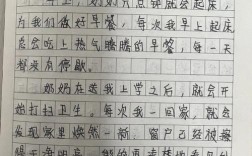 奶奶六点钟就会起床，
为我们做好早餐，每次我早上起床，
总会吃上热气腾腾的早餐，每一天
都没有停歇。
奶奶在送我上学之后，就会开
始打扫卫生。每次我一回家，就会
发现家里焕然一新，窗户已经被擦